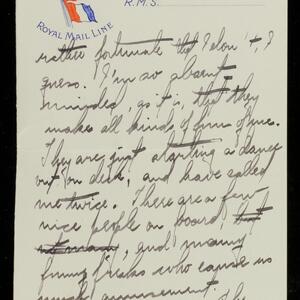 R.M.S.
ROYAL MAIL LINE
rather fortunate that I don't, I
guess. I'm so absent
minded, as it is, that they
make all kinds of fun of me.
They are just starting a dance
out on deck, and have called
me twice. There are a few
nice people on board, but
not many, and many
funny freaks who cause us
much amusement. The